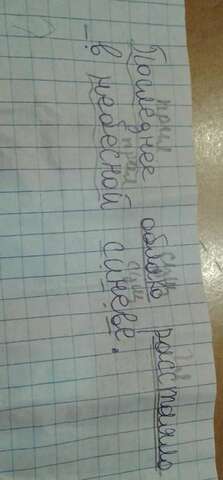 прил сущ гл
Последнее облако расстаяло
прил сущ
в небесной синеве.